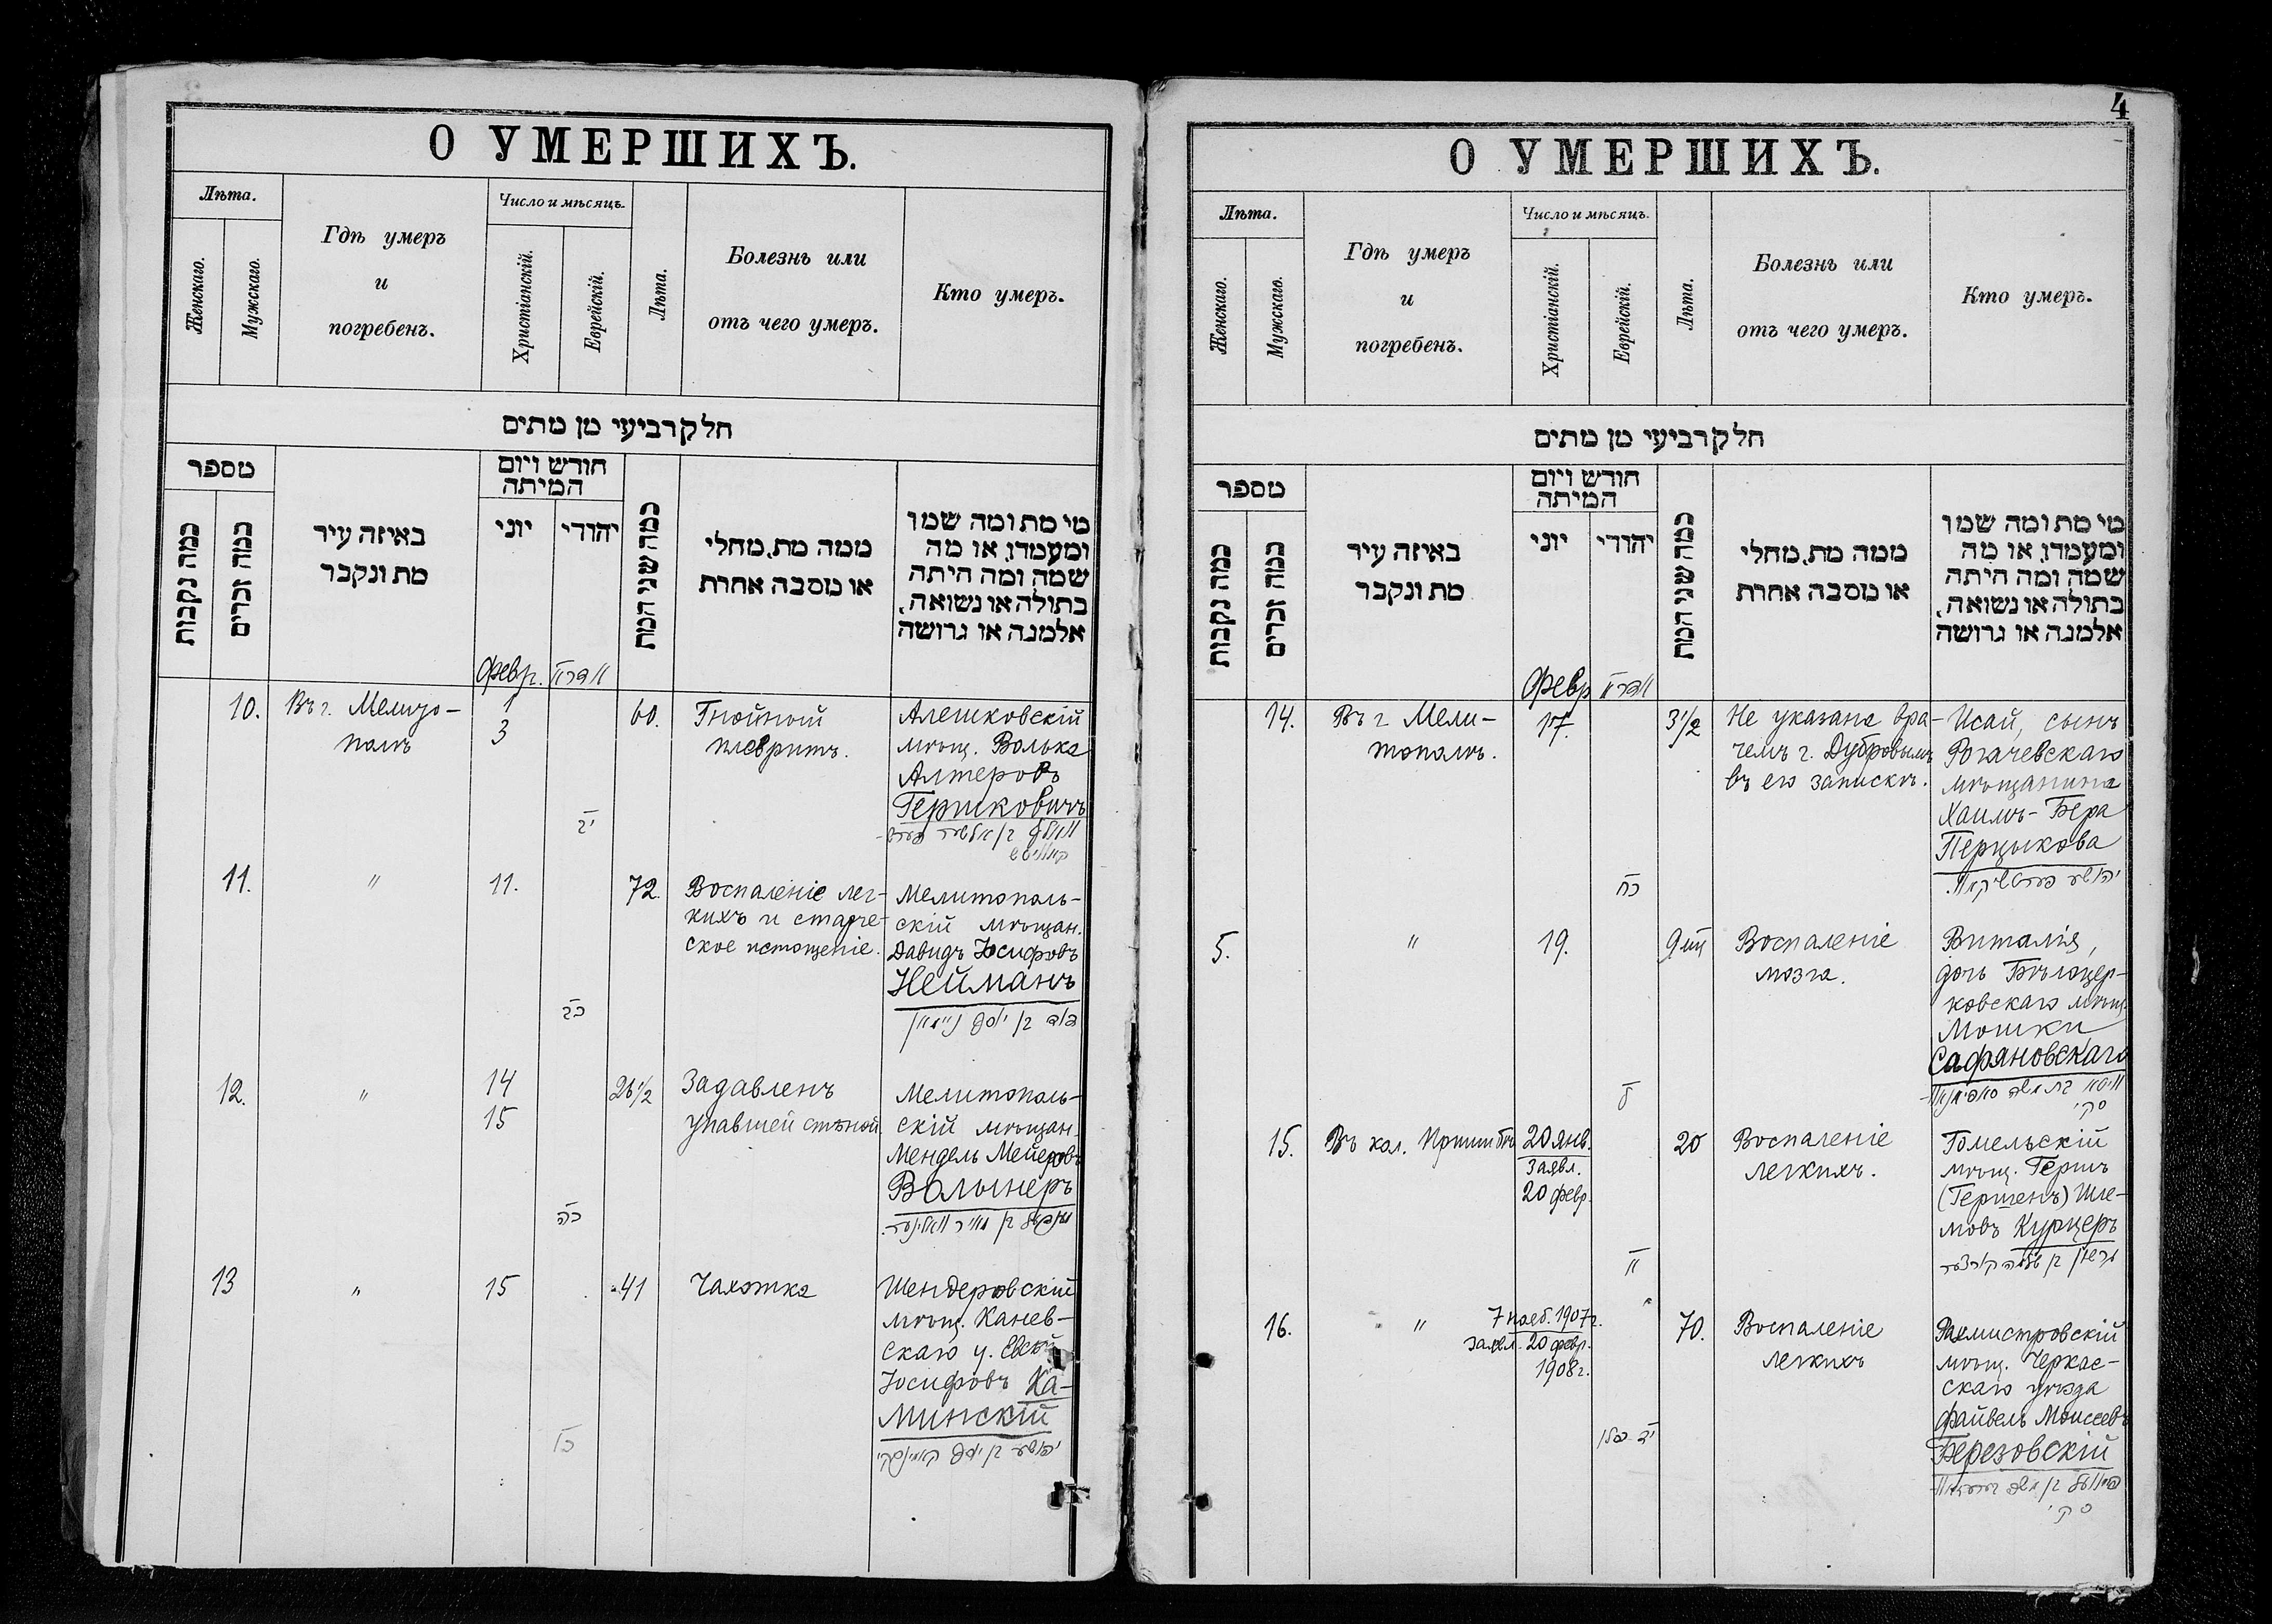 О УМЕРШИХЪ.
Лѣта.
Женскаго.
Мужскаго.
Гдѣ умеръ
и
погребенъ.
Число и мѣсяцъ.
Христіанскій.
Еврейскій.
Лѣта.
Болезнь или
отъ чего умеръ.
Кто умеръ.
חלק רביעי מן מתים
מספר
כמה נקבות
כמה זכרים
באיזה עיר
מת ונקבר
חודש ויום
המיתה
יוני
יהודי
כמה שני המת
ממה מת, מחלי
או מסבה אחרת
מי מת ומה שמו
ומעמדו, או מה
שמה ומה היתה
בתולה או נשואה,
אלמנה או גרושה
Февр.
10.
Въ г. Мелито-
полѣ
1
3
יב
60.
Гнойный
плевритъ.
Алешковскій
мѣщ. Волько
Алтеровъ
Гершковичъ
11.
"
11.
כב
72.
Воспаленіе лег-
кихъ и старче-
ское истощеніе.
Мелитополь-
скій мѣщан.
Давидъ Іосифовъ
Нейманъ
דוד בן יוסף ניימאן
12.
"
14
15
כה
26 1/2
Задавленъ
упавшей стѣной
Мелитополь-
скій мѣщан.
Мендель Мейеровъ
Волынеръ
מענדעל בן מאיר וואלינער.
13
"
15
כו
41
Чахотка
Шендеровскій
мѣщ. Канев-
скаго у.
Іосифовъ Ка-
минскій
יהושע בן יוסף קאמינסקי
4
О УМЕРШИХЪ.
Лѣта.
Женскаго.
Мужскаго.
Гдѣ умеръ
и
погребенъ.
Число и мѣсяцъ.
Христіанскій.
Еврейскій.
Лѣта.
Болезнь или
отъ чего умеръ.
Кто умеръ.
חלק רביעי מן מתים
מספר
כמה נקבות
כמה זכרים
באיזה עיר
מת ונקבר
חודש ויום
המיתה
יוני
יהודי
כמה שני המת
ממה מת, מחלי
או מסבה אחרת
מי מת ומה שמו
ומעמדו, או מה
שמה ומה היתה
בתולה או נשואה,
אלמנה או גרושה
Февр
14.
Въ г Мели-
тополѣ.
17.
כח
3 1/2
Не указана вра-
чемъ г. Дубровымъ
въ его запискѣ.
Исай, сынъ
Рогачевскаго
мѣщанина
Хаимъ-Бера
Перцыкова
5.
"
19.
9 мц
Воспаленіе
мозга.
Виталія,
дочь Бѣлоцер-
ковскаго мѣщ.
Мошки
Сафяновскаго
סקי
15.
Въ кол. Пришибъ
20 янв.
заявл.
20 февр.
20
Воспаленіе
легкихъ.
Гомельскій
мѣщ. Гершъ
(Гершенъ) Шле-
мовъ Курцеръ
גרשון בן שלמה קורצער
16.
"
7 нояб. 1907 г.
заявл. 20 февр.
1908 г.
70.
Воспаленіе
легкихъ
Рахмистровскій
мѣщ. Черкас-
скаго уѣзда
Файвель Моисеевъ
Березовскій
סקי